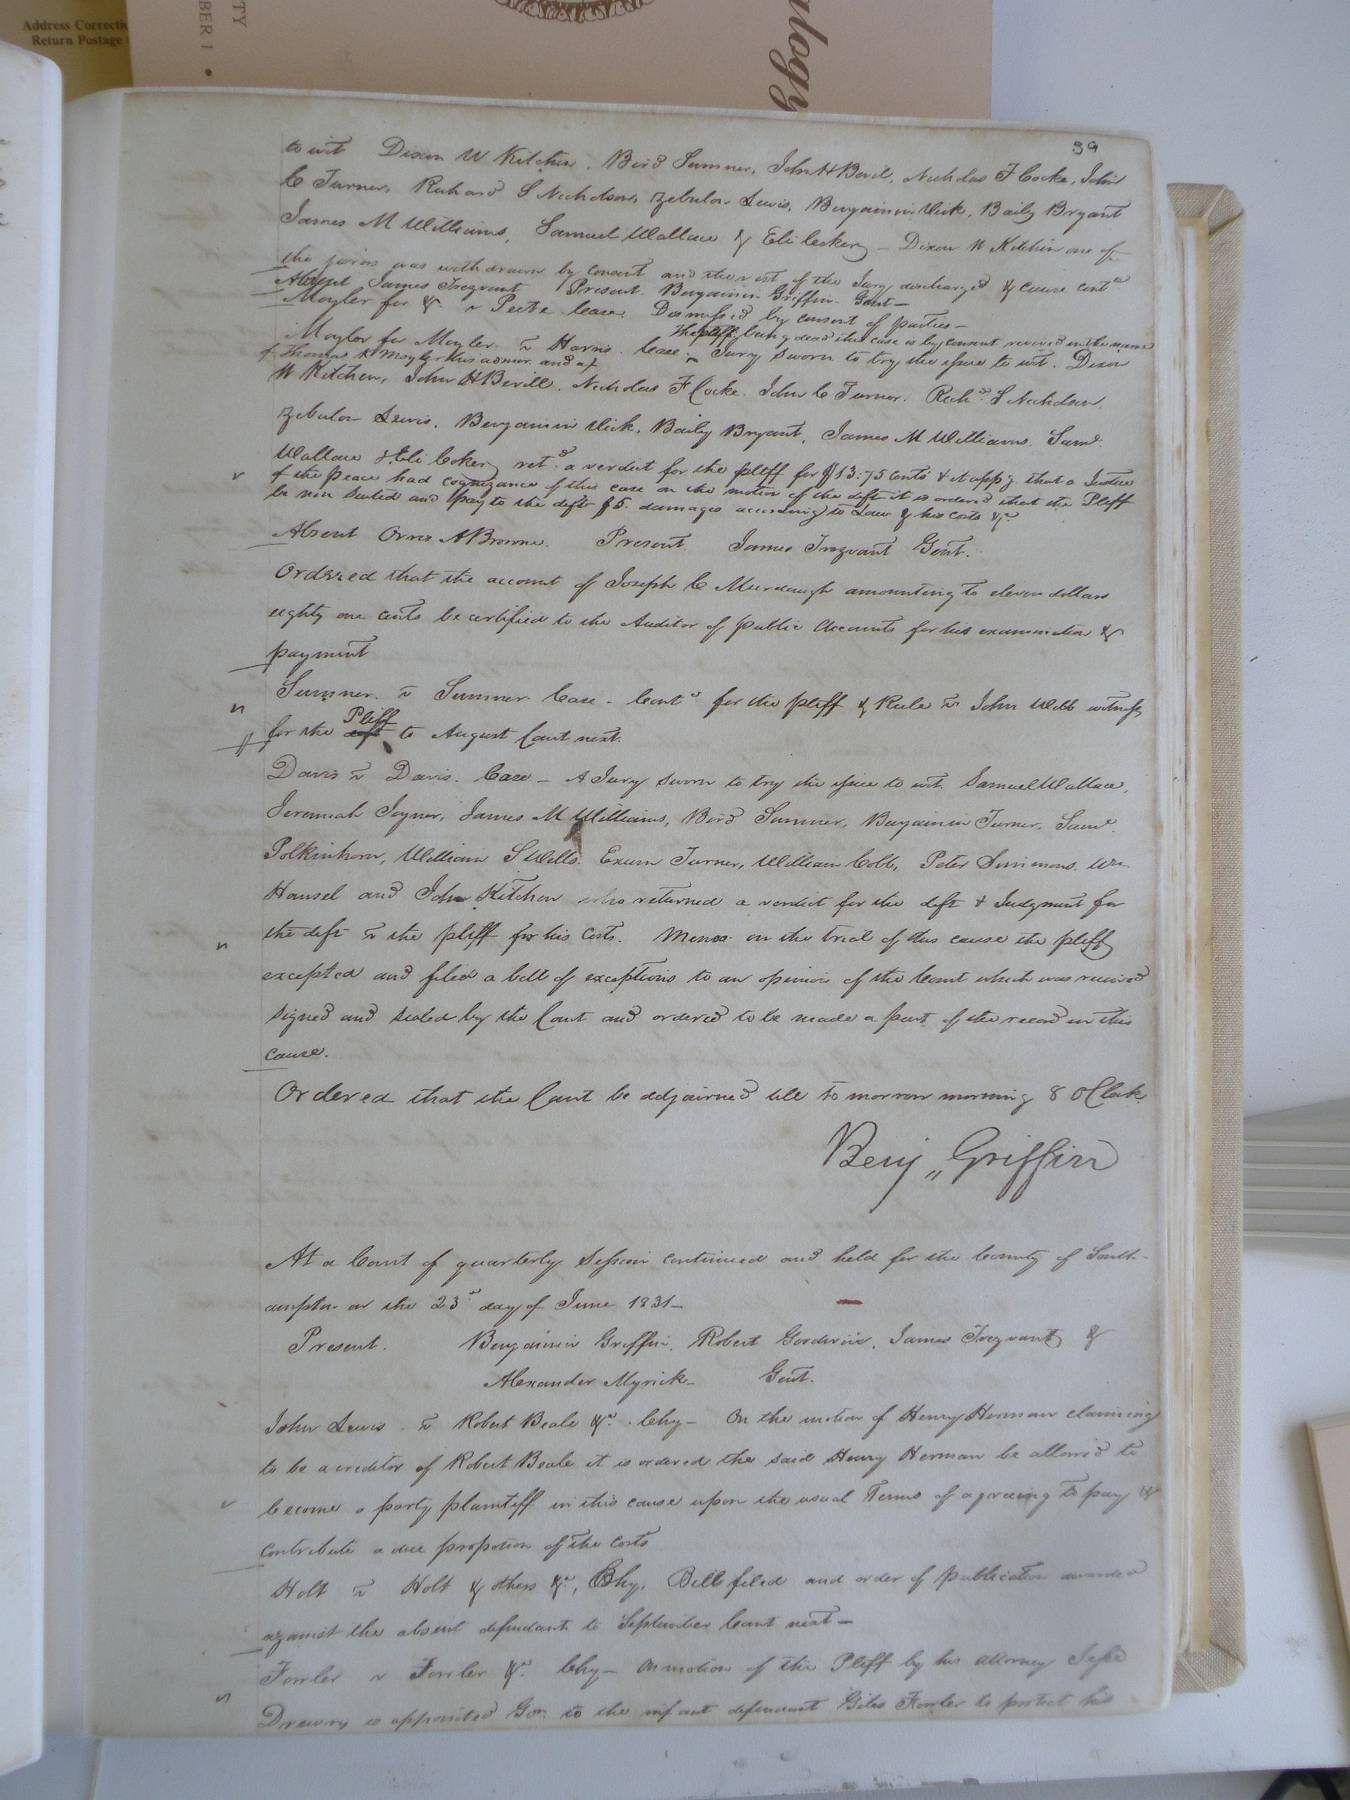 Address Correctio
Return Postage
TY
BER 1 •
alogy
39
to wit Dixon W Kitchen, Bird Sumner, John H Bevil, Nicholas F Cocke, John
C Turner, Richard S Nicholson, Zebulon Lewis, Benjamin Vick, Baily Bryant
James M Williams, Samuel Wallace & Eli Cokery – Dixon W Kitchin one of
the jurors was withdrawn by consent and the rest of the Jury discharged & cause contd
Absent James Trezvant Present Benjamin Griffin Gent –
Moyler for &c. v Peete Case. Dismissed by consent of parties –
The pltff being dead this case is by consent revived in the name
Moyler for Moyler v Harris Case Jury sworn to try the issue to wit. Dixon
of Thomas Moyler his admor. and
W Kitchen, John H Bevill. Nicholas F Cocke. John C Turner. Richd. S Nicholson.
Zebulon Lewis. Benjamin Vick, Baily Bryant, James M Williams. Saml.
Wallace & Eli Cokery retd. a verdict for the pltff for $13:75 Cents & it appg that a Justice
of the Peace had cognizance of this case on the motion of the deft it is ordered that the Pltff
be non suited and pay to the deft $5. damages according to Law & his costs &c
Absent Orris A Browne. Present James Trezvant Gent.
Ordered that the account of Joseph C Murdaugh amounting to eleven dollars
eighty one cents be certified to the Auditor of public Accounts for his examination &
payment
Sumner v Sumner Case – Contd for the pltff & Rule v John Webb witness
Pltff
for the deft to August Court next.
Davis v Davis. Case – A Jury sworn to try the issue to wit Samuel Wallace,
Jeremiah Joyner, James M Williams, Bird Sumner, Benjamin Turner, Saml.
Polkinhorn, William S Wells. Exum Turner, William Cobb, Peter Simmons. Wm
Hansel and John Kitchen who returned a verdict for the deft & Judgment for
the deft v the pltff for his costs. Memo. on the trial of this cause the pltff
excepted and filed a bill of exceptions to an opinion of the Court which was received
signed and sealed by the Court and ordered to be made a part of the record in this
cause.
Ordered that the Court be adjourned till to morrow morning 8 O Clock.
Benj" Griffin
At a Court of quarterly Session continued and held for the County of South-
ampton on the 23d day of June 1831 –
Present. Benjamin Griffin, Robert Goodwin, James Trezvant &
Alexander Myrick – Gent.
John Lewis v Robert Beale &c. Chy – On the motion of Henry Herman claiming
to be a creditor of Robert Beale it is ordered the said Henry Herman be allowed to
become a party plaintiff in this cause upon the usual Terms of agreeing to pay &
contribute a due propotion of the costs
Holt v Holt & others &c, Chy. Bill filed and order of publication awarded
against the absent defendant to September Court next –
Fowler v Fowler &c. Chy – On motion of the Pltff by his attorney Jesse
Drewry is appointed Gon. to the infant defendant Giles Fowler to protect his